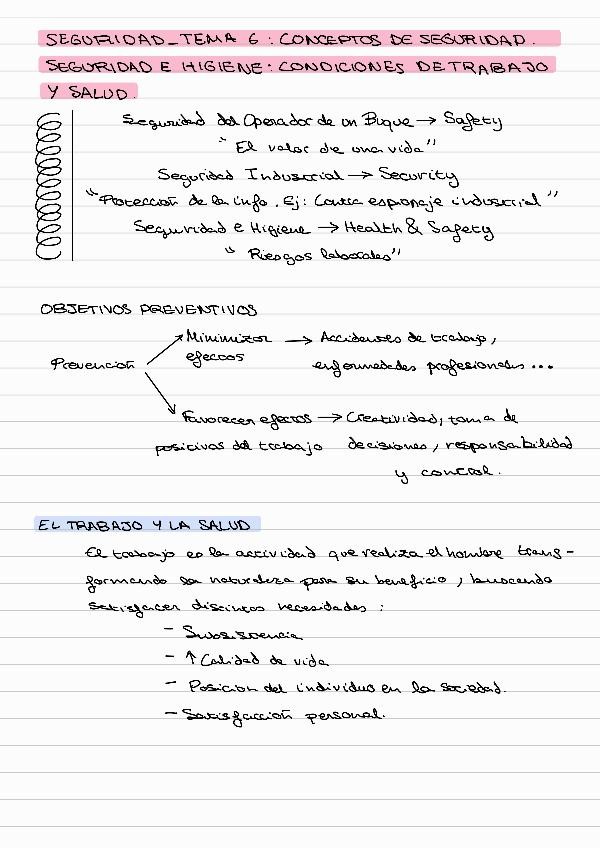 SEGURIDAD_TEMA 6: CONCEPTOS DE SEGURIDAD.
SEGURIDAD E HIGIENE: CONDICIONES DE TRABAJO
Y SALUD.
Seguridad del Operador de un Buque → Safety
"El valor de una vida"
Seguridad Industrial → Security
"Protección de la info. Ej: Contra espionaje industrial"
Seguridad e Higiene → Health & Safety
"Riesgos laborales"
OBJETIVOS PREVENTIVOS
Minimizar → Accidentes de trabajo,
Prevención efectos enfermedades profesionales...
Favorecer efectos → Creatividad, toma de
positivos del trabajo decisiones, responsabilidad
y control.
EL TRABAJO Y LA SALUD
El trabajo es la actividad que realiza el hombre trans-
formando la naturaleza para su beneficio, buscando
satisfacer distintas necesidades:
- Subsistencia
- ↑ Calidad de vida
- Posición del individuo en la sociedad.
- Satisfacción personal.